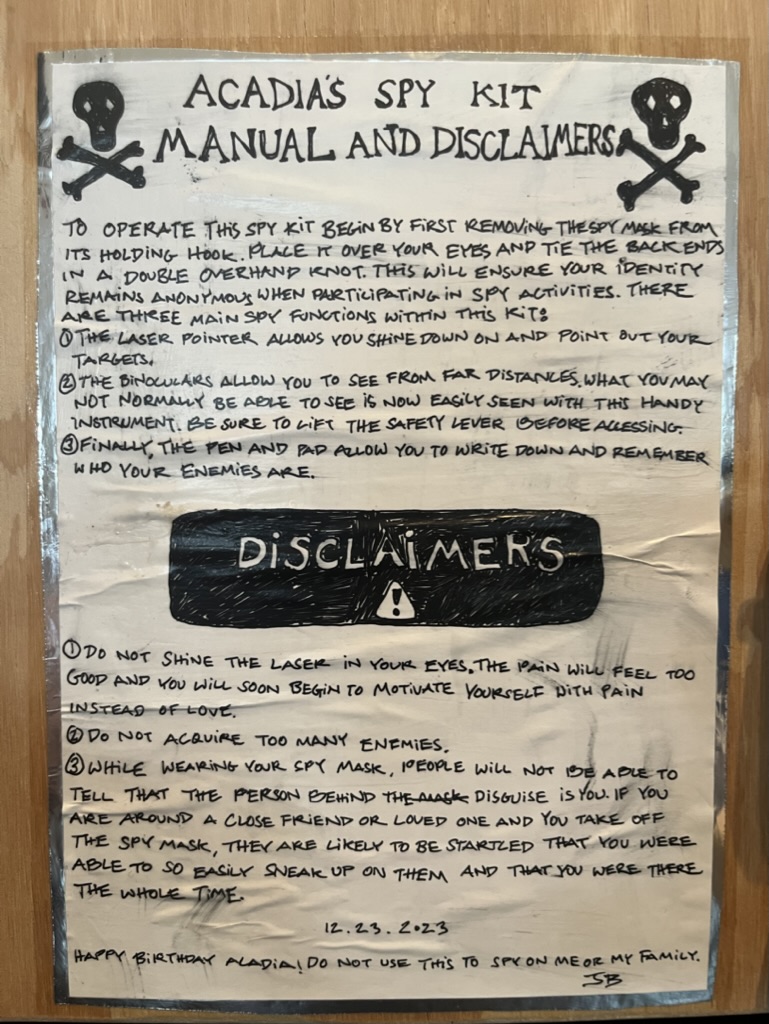 ACADIA'S SPY KIT
MANUAL AND DISCLAIMERS
TO OPERATE THIS SPY KIT BEGIN BY FIRST REMOVING THE SPY MASK FROM
ITS HOLDING HOOK. PLACE IT OVER YOUR EYES AND TIE THE BACK ENDS
IN A DOUBLE OVERHAND KNOT. THIS WILL ENSURE YOUR IDENTITY
REMAINS ANONYMOUS WHEN PARTICIPATING IN SPY ACTIVITIES. THERE
ARE THREE MAIN SPY FUNCTIONS WITHIN THIS KIT:
① THE LASER POINTER ALLOWS YOU SHINE DOWN ON AND POINT OUT YOUR
TARGETS.
② THE BINOCULARS ALLOW YOU TO SEE FROM FAR DISTANCES. WHAT YOU MAY
NOT NORMALLY BE ABLE TO SEE IS NOW EASILY SEEN WITH THIS HANDY
INSTRUMENT. BE SURE TO LIFT THE SAFETY LEVER BEFORE ACCESSING.
③ FINALLY, THE PEN AND PAD ALLOW YOU TO WRITE DOWN AND REMEMBER
WHO YOUR ENEMIES ARE.
DISCLAIMERS
!
① DO NOT SHINE THE LASER IN YOUR EYES. THE PAIN WILL FEEL TOO
GOOD AND YOU WILL SOON BEGIN TO MOTIVATE YOURSELF WITH PAIN
INSTEAD OF LOVE.
② DO NOT ACQUIRE TOO MANY ENEMIES.
③ WHILE WEARING YOUR SPY MASK, PEOPLE WILL NOT BE ABLE TO
TELL THAT THE PERSON BEHIND THE MASK DISGUISE IS YOU. IF YOU
ARE AROUND A CLOSE FRIEND OR LOVED ONE AND YOU TAKE OFF
THE SPY MASK, THEY ARE LIKELY TO BE STARTLED THAT YOU WERE
ABLE TO SO EASILY SNEAK UP ON THEM AND THAT YOU WERE THERE
THE WHOLE TIME.
12.23.2023
HAPPY BIRTHDAY ACADIA! DO NOT USE THIS TO SPY ON ME OR MY FAMILY.
JB